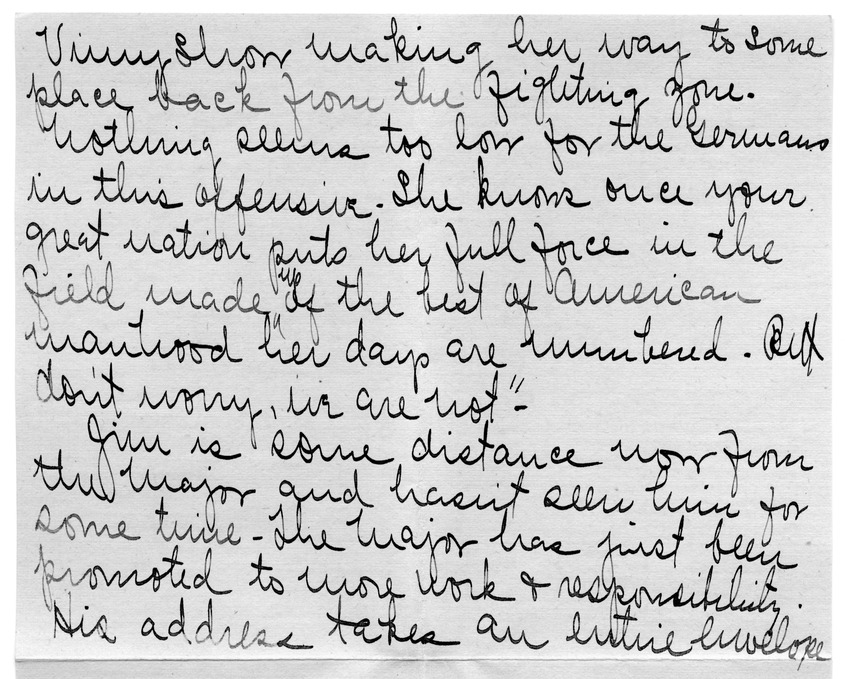 very slow making her way to some
place back from the fighting zone.
Nothing seems too low for the Germans
in this offensive. She knows once your
great nation puts her full force in the
field made up of the best of American
manhood her days are numbered. But
don't worry, we are not"-
Jim is some distance now from
the Major and hasn't seen him for
some time - The Major has just been
promoted to more work & responsibility.
His address takes an entire envelope